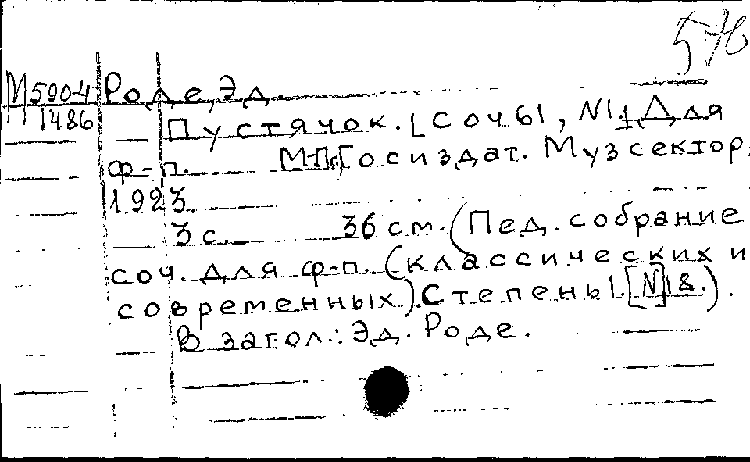 576
М5904 Роде, Эд.
1486 Пустячок. [Соч 61, N 1] Для
ф-п. М-П. Госиздат. Музсектор,
1923.
3 с. 36 см. (Пед. собрание
соч. для ф-п. (классических и
современных). Степень I. [N] 18.).
В загол.: Эд. Роде.